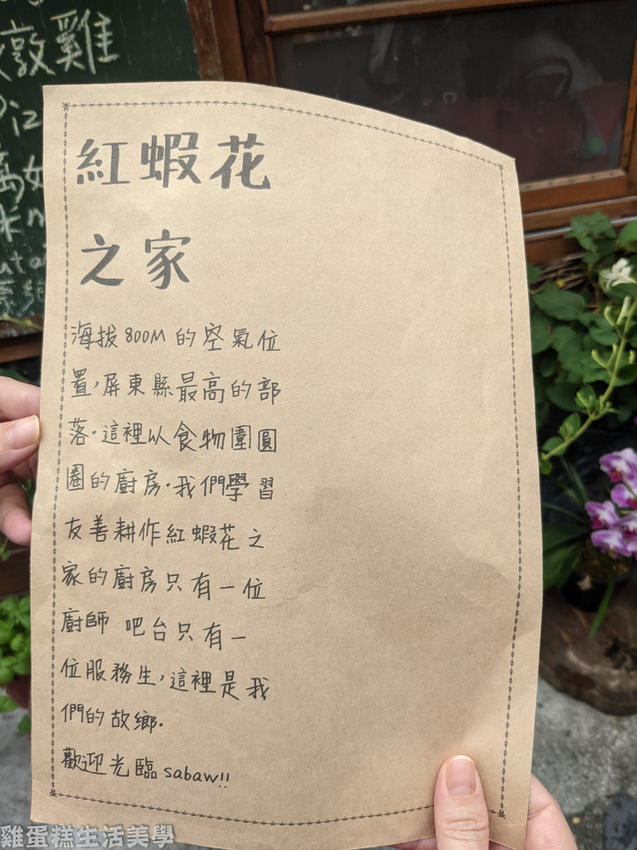 墩雞
紅蝦花
之家
海拔800M的空氣位
置，屏東縣最高的部
落．這裡以食物圍圓
圈的廚房．我們學習
友善耕作紅蝦花之
家的廚房只有一位
廚師 吧台只有一
位服務生，這裡是我
們的故鄉．
歡迎光臨 sabaw!!
雞蛋糕生活美學